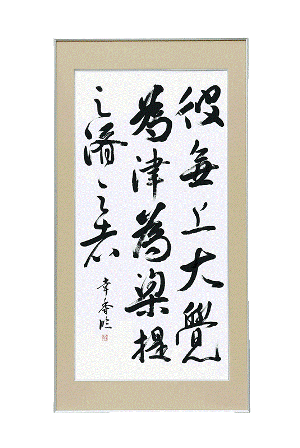 役無上大覺
為津為梁提
之濟之者
幸香臨